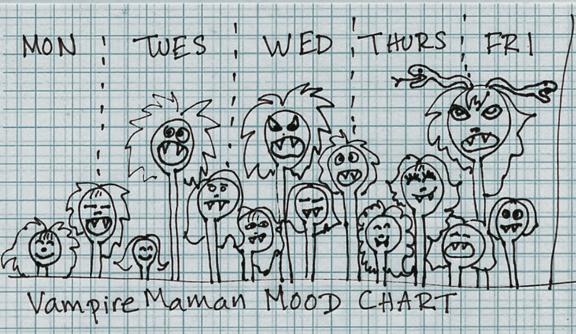 MON TUES WED THURS FRI
Vampire Maman MOOD CHART